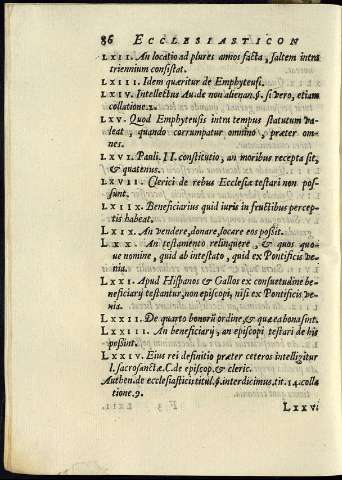 86 ECCLESIASTICON
LXII. An locatio ad plures annos facta, saltem intra
triennium consistat.
LXIII. Idem quæritur de Emphyteusi.
LXIV. Intellectus Au. de non alienan. §. si vero, etiam
collatione.2.
LXV. Quod Emphyteusis intra tempus statutum va-
leat, quando corrumpatur omnino, præter om-
nes.
LXVI. Pauli. II. constitutio, an moribus recepta sit,
& quatenus.
LXVII. Clerici de rebus Ecclesiæ testari non pos-
sunt.
LXIIX. Beneficiarius quid iuris in fructibus percep-
tis habeat.
LXIX. An vendere, donare, locare eos possit.
LXX. An testamento relinquere, & quos quo-
ue nomine, quid ab intestato, quid ex Pontificis ve-
nia.
LXXI. Apud Hispanos & Gallos ex consuetudine be-
neficiarij testantur, non episcopi, nisi ex Pontificis ve-
nia.
LXXII. De quarto bonorū ordine, & quæ ea bona sint.
LXXIII. An beneficiarij, an episcopi testari de his
possint.
LXXIV. Eius rei definitio præter ceteros intelligitur
l. sacrosanctæ. C. de episcop. & cleric.
Authen. de ecclesiasticis titul. §. interdicimus, tit. 14. colla
tione. 9.
LXXVI